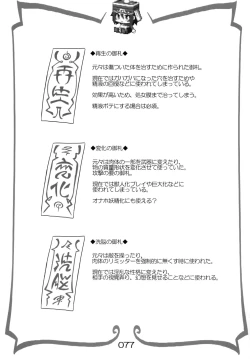 ◆再生の御札◆
元々は傷ついた体を治すために作られた御札。
現在ではガバガバになった穴を治すためや
精液の回復などに使われてしまっている。
効果が高いため、処女膜まで治ってしまう。
精液ボテにする場合は必須。
再生
◆変化の御札◆
元々は肉体の一部を武器に変えたり、
物の質量形状を変化させて使っていた。
攻撃の要の御札。
現在では獣人化プレイや巨大化などに
使われてしまっている。
オナホ妖精化にも使える?
変化
◆洗脳の御札◆
元々は敵を操ったり、
肉体のリミッターを強制的に無くす時に使われた。
現在では淫乱な性格に変えたり、
相手の視覚弄り、幻想を見せることなどに使われる。
洗脳
077